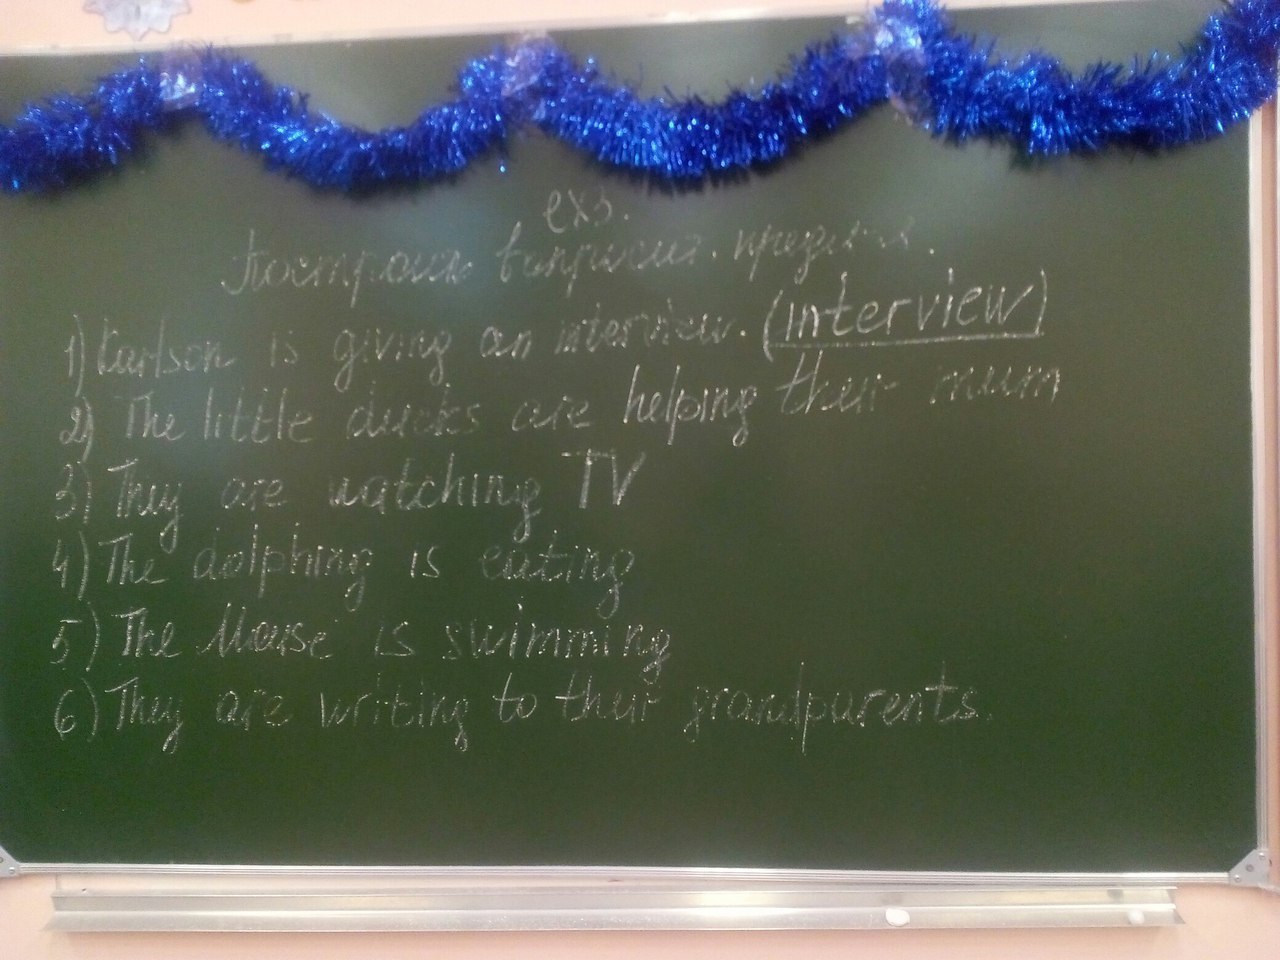 ex5.
Построить вопросит. предлож.
1) Karlson is giving an interview. (interview)
2) The little ducks are helping their mum
3) They are watching TV
4) The dolphing is eating
5) The Mouse is swimming
6) They are writing to their grandparents.